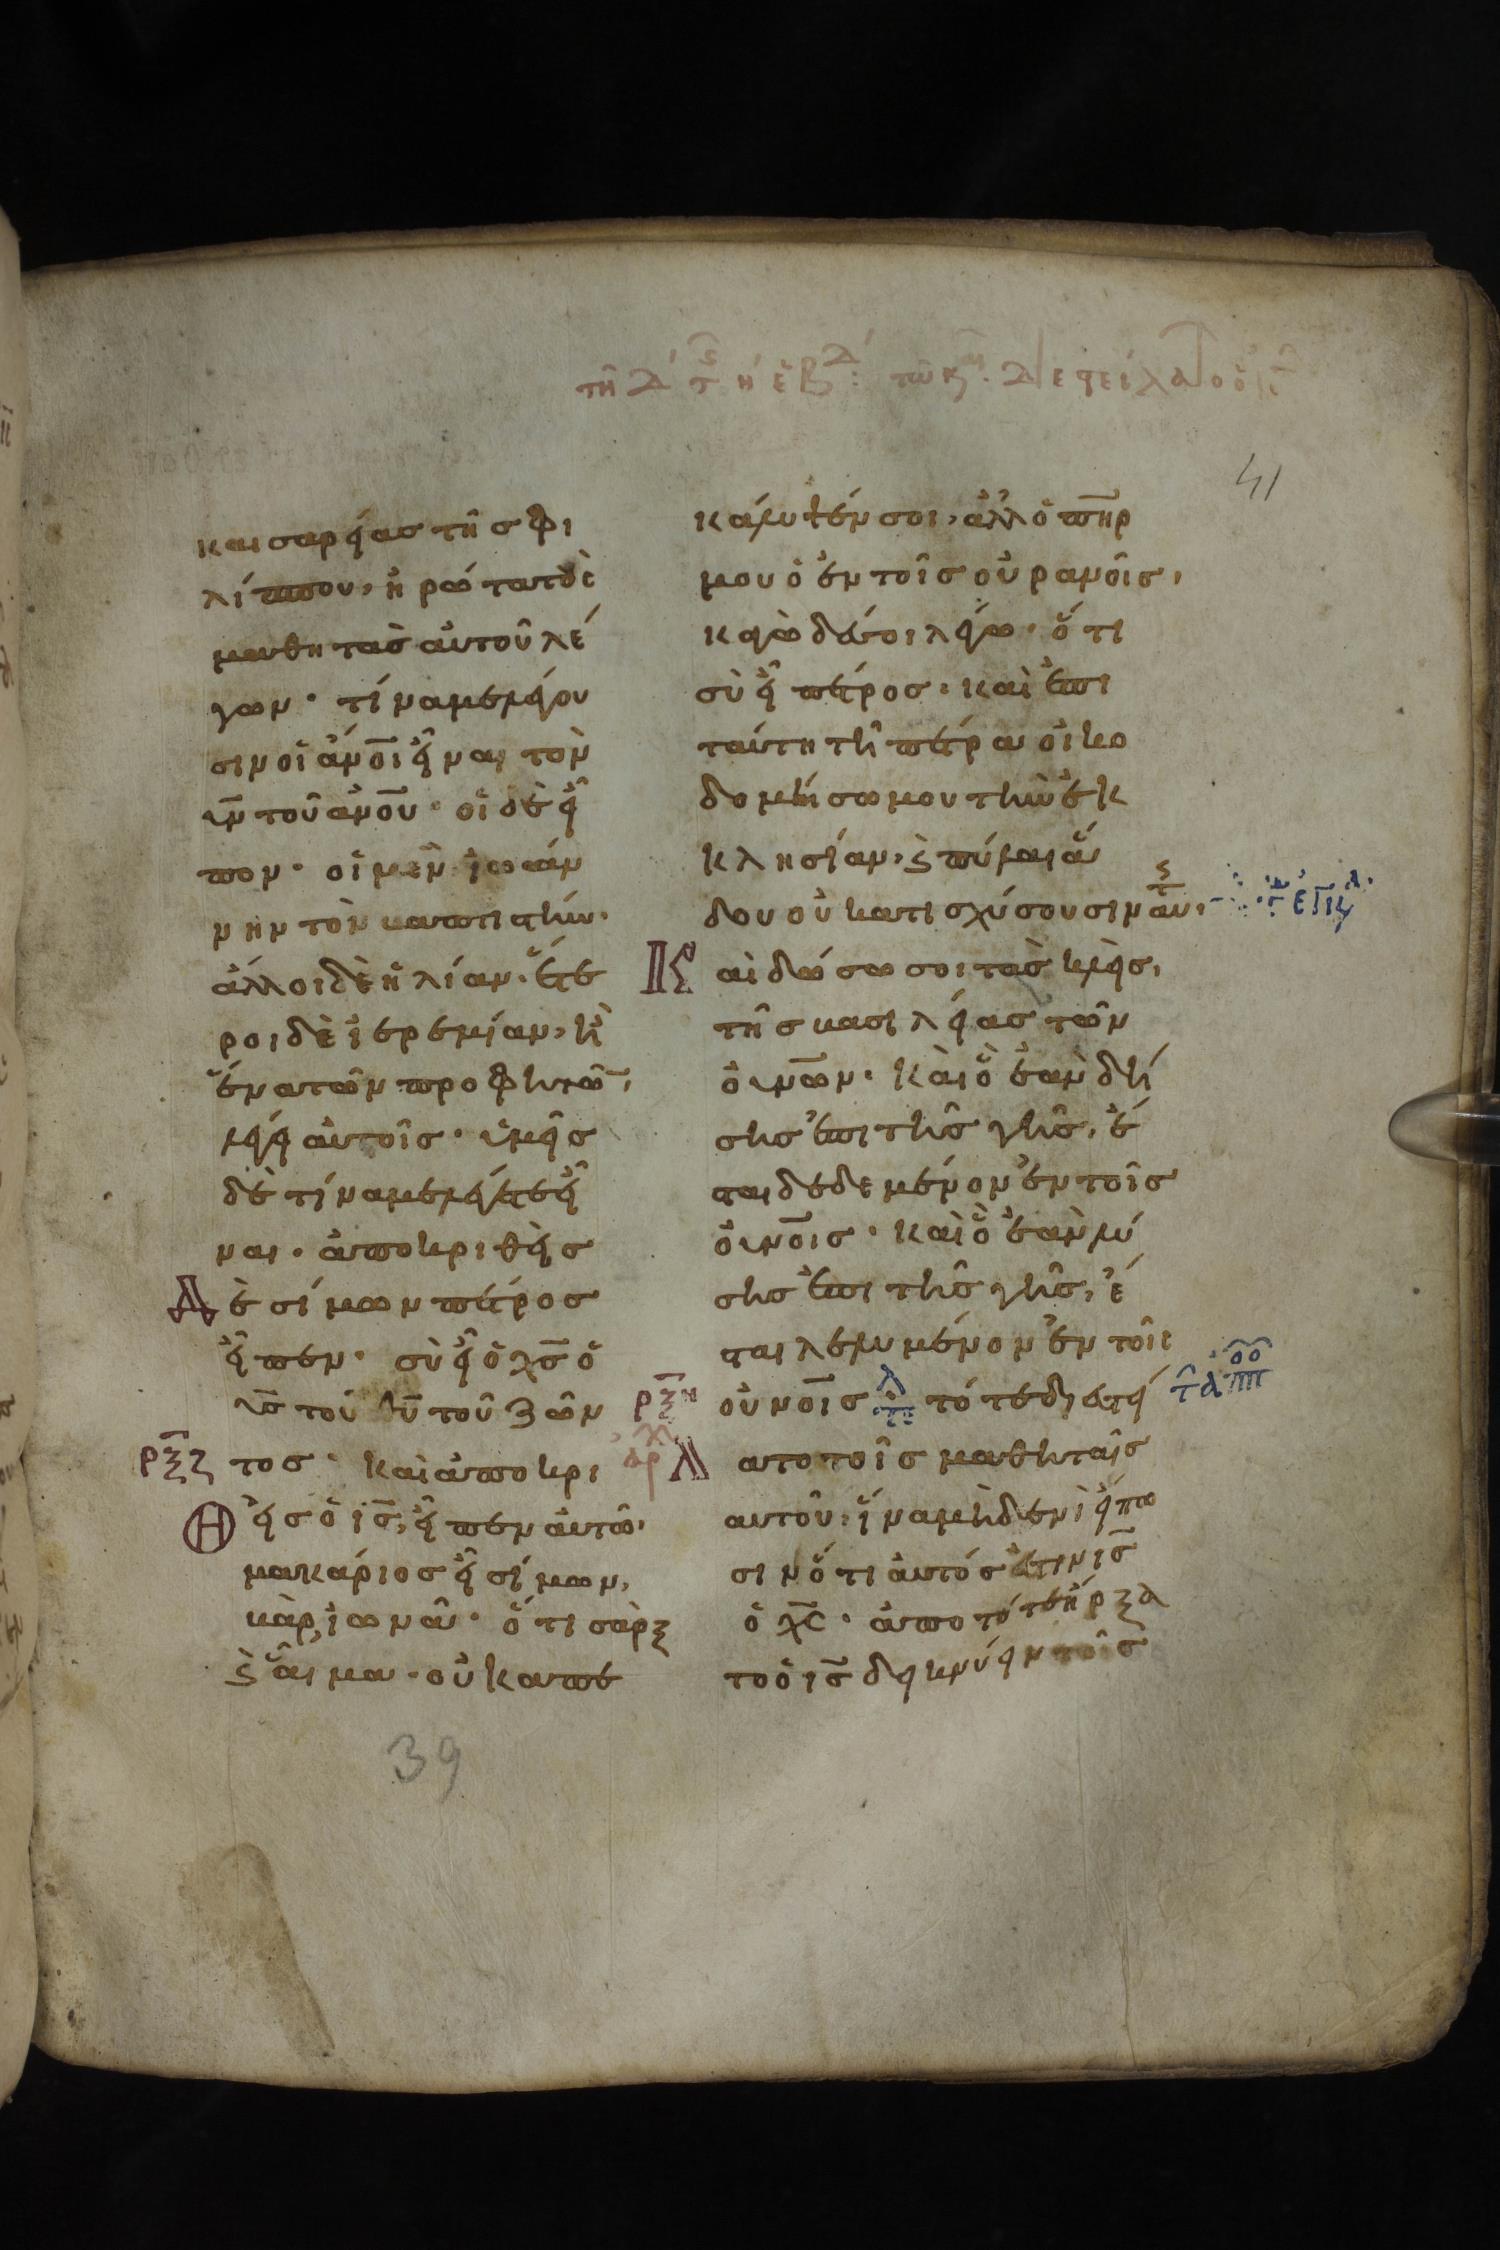 41
καισαρείας τῆς φι
λίππου, ἠρώτα τοὺς
μαθητὰς αὐτοῦ λέ
γων· τίνα με λέγου
σιν οἱ ἄνοι εἶναι τὸν
υν τοῦ ανου· οἱ δὲ εἶ
πον· οἱ μὲν ἰωάν
νην τὸν βαπτιστήν·
ἄλλοι δὲ ἠλίαν· ἕτε
ροι δὲ ἱερεμίαν, ἢ
ἕνα τῶν προφητῶ,
λέγει αὐτοῖς· ὑμεῖς
δὲ τίνα με λέγετε εἶ
ναι· ἀποκριθεὶς
Δὲ σίμων πέτρος
εἶπεν· σὺ εἶ ὁ χς ὁ
υς τοῦ θυ τοῦ ζῶν
ρξζ τος· καὶ ἀποκρι
Θεὶς ὁ ις, εἶπεν αὐτῶ·
μακάριος εἶ σίμων,
βὰρ ἰωνᾶ· ὅτι σὰρξ
ϛ αἷμα· οὐκ ἀπε
κάλυψέν σοι, ἀλλ ὁ πηρ
μου ὁ ἐν τοῖς οὐρανοῖς,
κἀγὼ δέ σοι λέγω· ὅτι
σὺ εἶ πέτρος· καὶ ἐπι
ταύτη τῆ πέτρα οἰκο
δομήσω μου τὴν ἐκ
κλησίαν, ϛ πύλαι ἅ
δου οὐ κατισχύσουσιν αὐ·
Καὶ δώσω σοι τὰς κλεῖς,
τῆς βασιλείας τῶν
οὐνων· καὶ ὃ ἐὰν δή
σης ἐπι τῆς γῆς, ἔ
σται δεδεμένον ἐν τοῖς
οὐνοις· καὶ ὃ ἐὰν λύ
σης ἐπι τῆς γῆς, ἔ
σται λελυμένον ἐν τοῖς
ρξη οὐνοις τότε διεστεί
Λατο τοῖς μαθηταῖς
αὐτοῦ, ἵνα μηδενὶ εἴπω
σιν ὅτι αὐτός ἐστιν ις
ὁ χς· ἀπο τότε ἤρξα
το ὁ ις δεικνύειν τοῖς
39